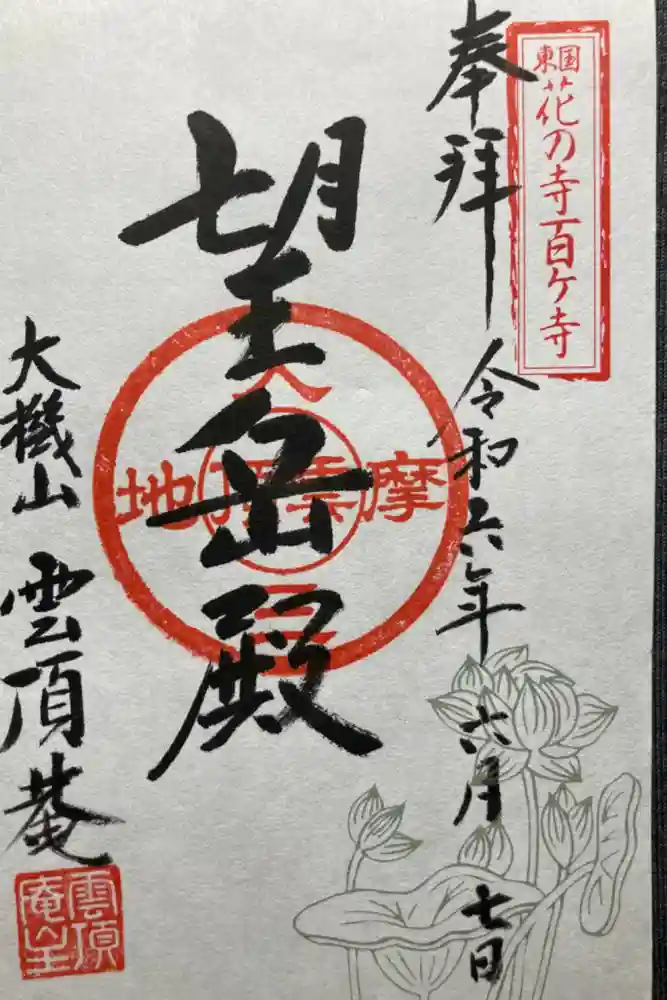 東国
花の寺百ヶ寺
奉拝
令和六年
六月
七日
望岳殿
三
摩
地
雲頂
大機山
雲頂菴
雲頂
庵主